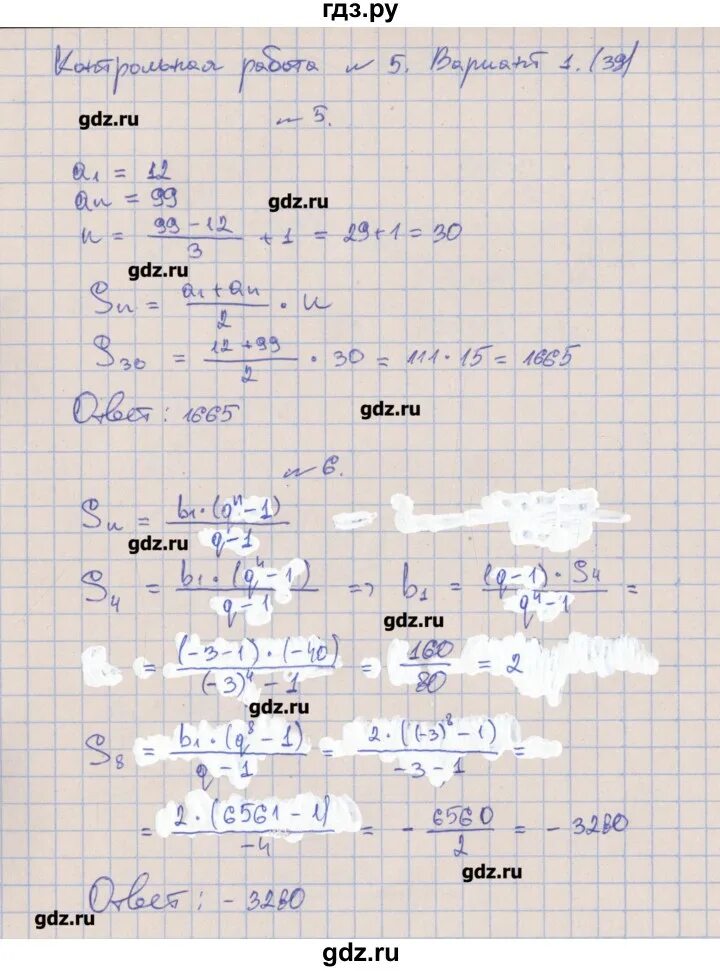 гдз.ру
Контрольная работа № 5. Вариант 1. (39)
gdz.ru
№ 5.
a₁ = 12
aₙ = 99
gdz.ru
n = (99 - 12)/3 + 1 = 29 + 1 = 30
gdz.ru
Sₙ = (a₁ + aₙ)/2 · n
S₃₀ = (12 + 99)/2 · 30 = 111 · 15 = 1665
Ответ: 1665
gdz.ru
№ 6.
Sₙ = b₁·(qⁿ - 1)/(q - 1)
gdz.ru
S₄ = b₁·(q⁴ - 1)/(q - 1) => b₁ = (q - 1)·S₄/(q⁴ - 1) =
gdz.ru
= (-3 - 1)·(-40)/((-3)⁴ - 1) = 160/80 = 2
gdz.ru
S₈ = b₁·(q⁸ - 1)/(q - 1) = 2·((-3)⁸ - 1)/(-3 - 1) =
= 2·(6561 - 1)/(-4) = - 6560/2 = - 3280
gdz.ru
Ответ: - 3280
gdz.ru
gdz.ru